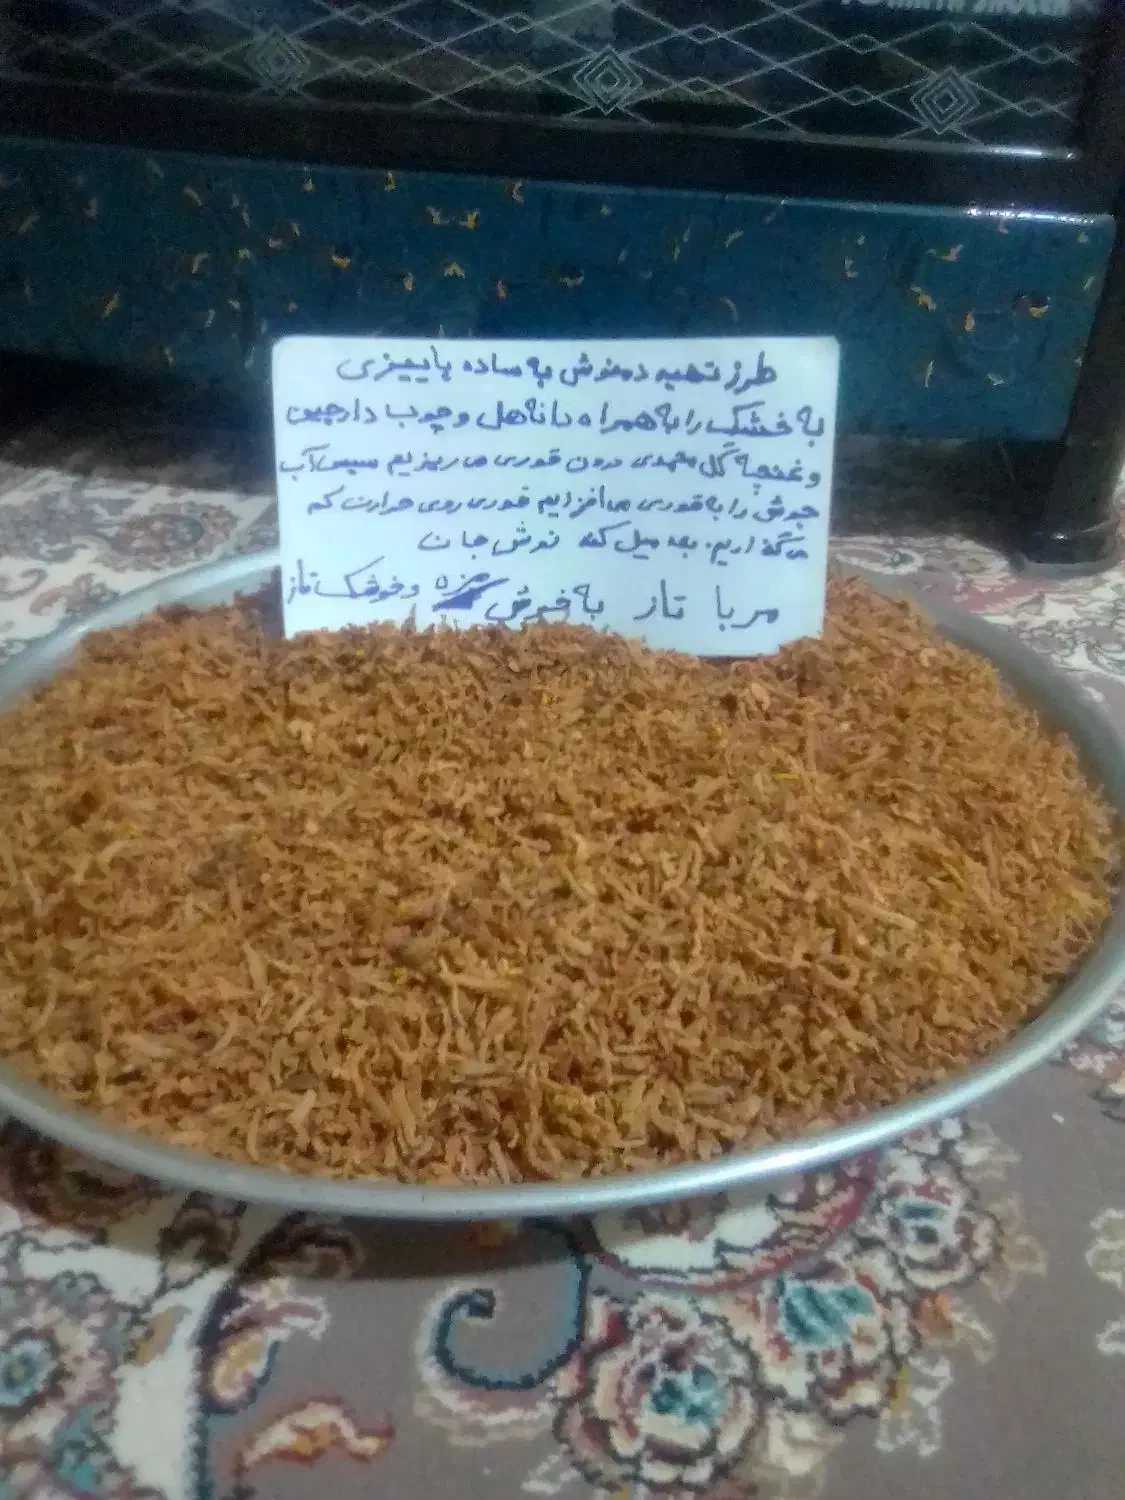 طرز تهیه دمنوش به ساده پاییزی
به خشک را به همراه دانه هل و چوب دارچین
و غنچه گل محمدی درون قوری می ریزیم سپس آب
جوش را به قوری می افزاییم قوری روی حرارت کم
می گذاریم. بعد میل کنه نوش جان
مربا تاز به خوش مزه و خوشک تاز